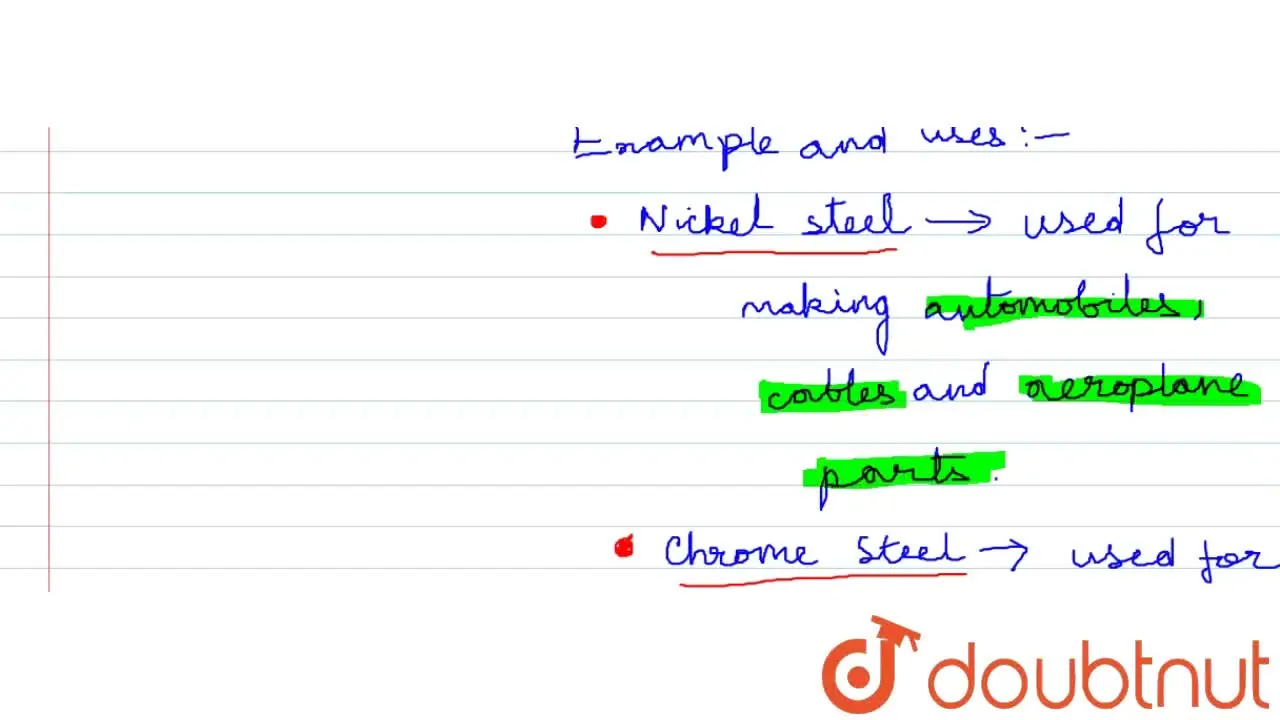 Example and uses:—
• Nickel steel → used for
making automobiles,
cables and aeroplane
parts.
• Chrome Steel → used for
doubtnut